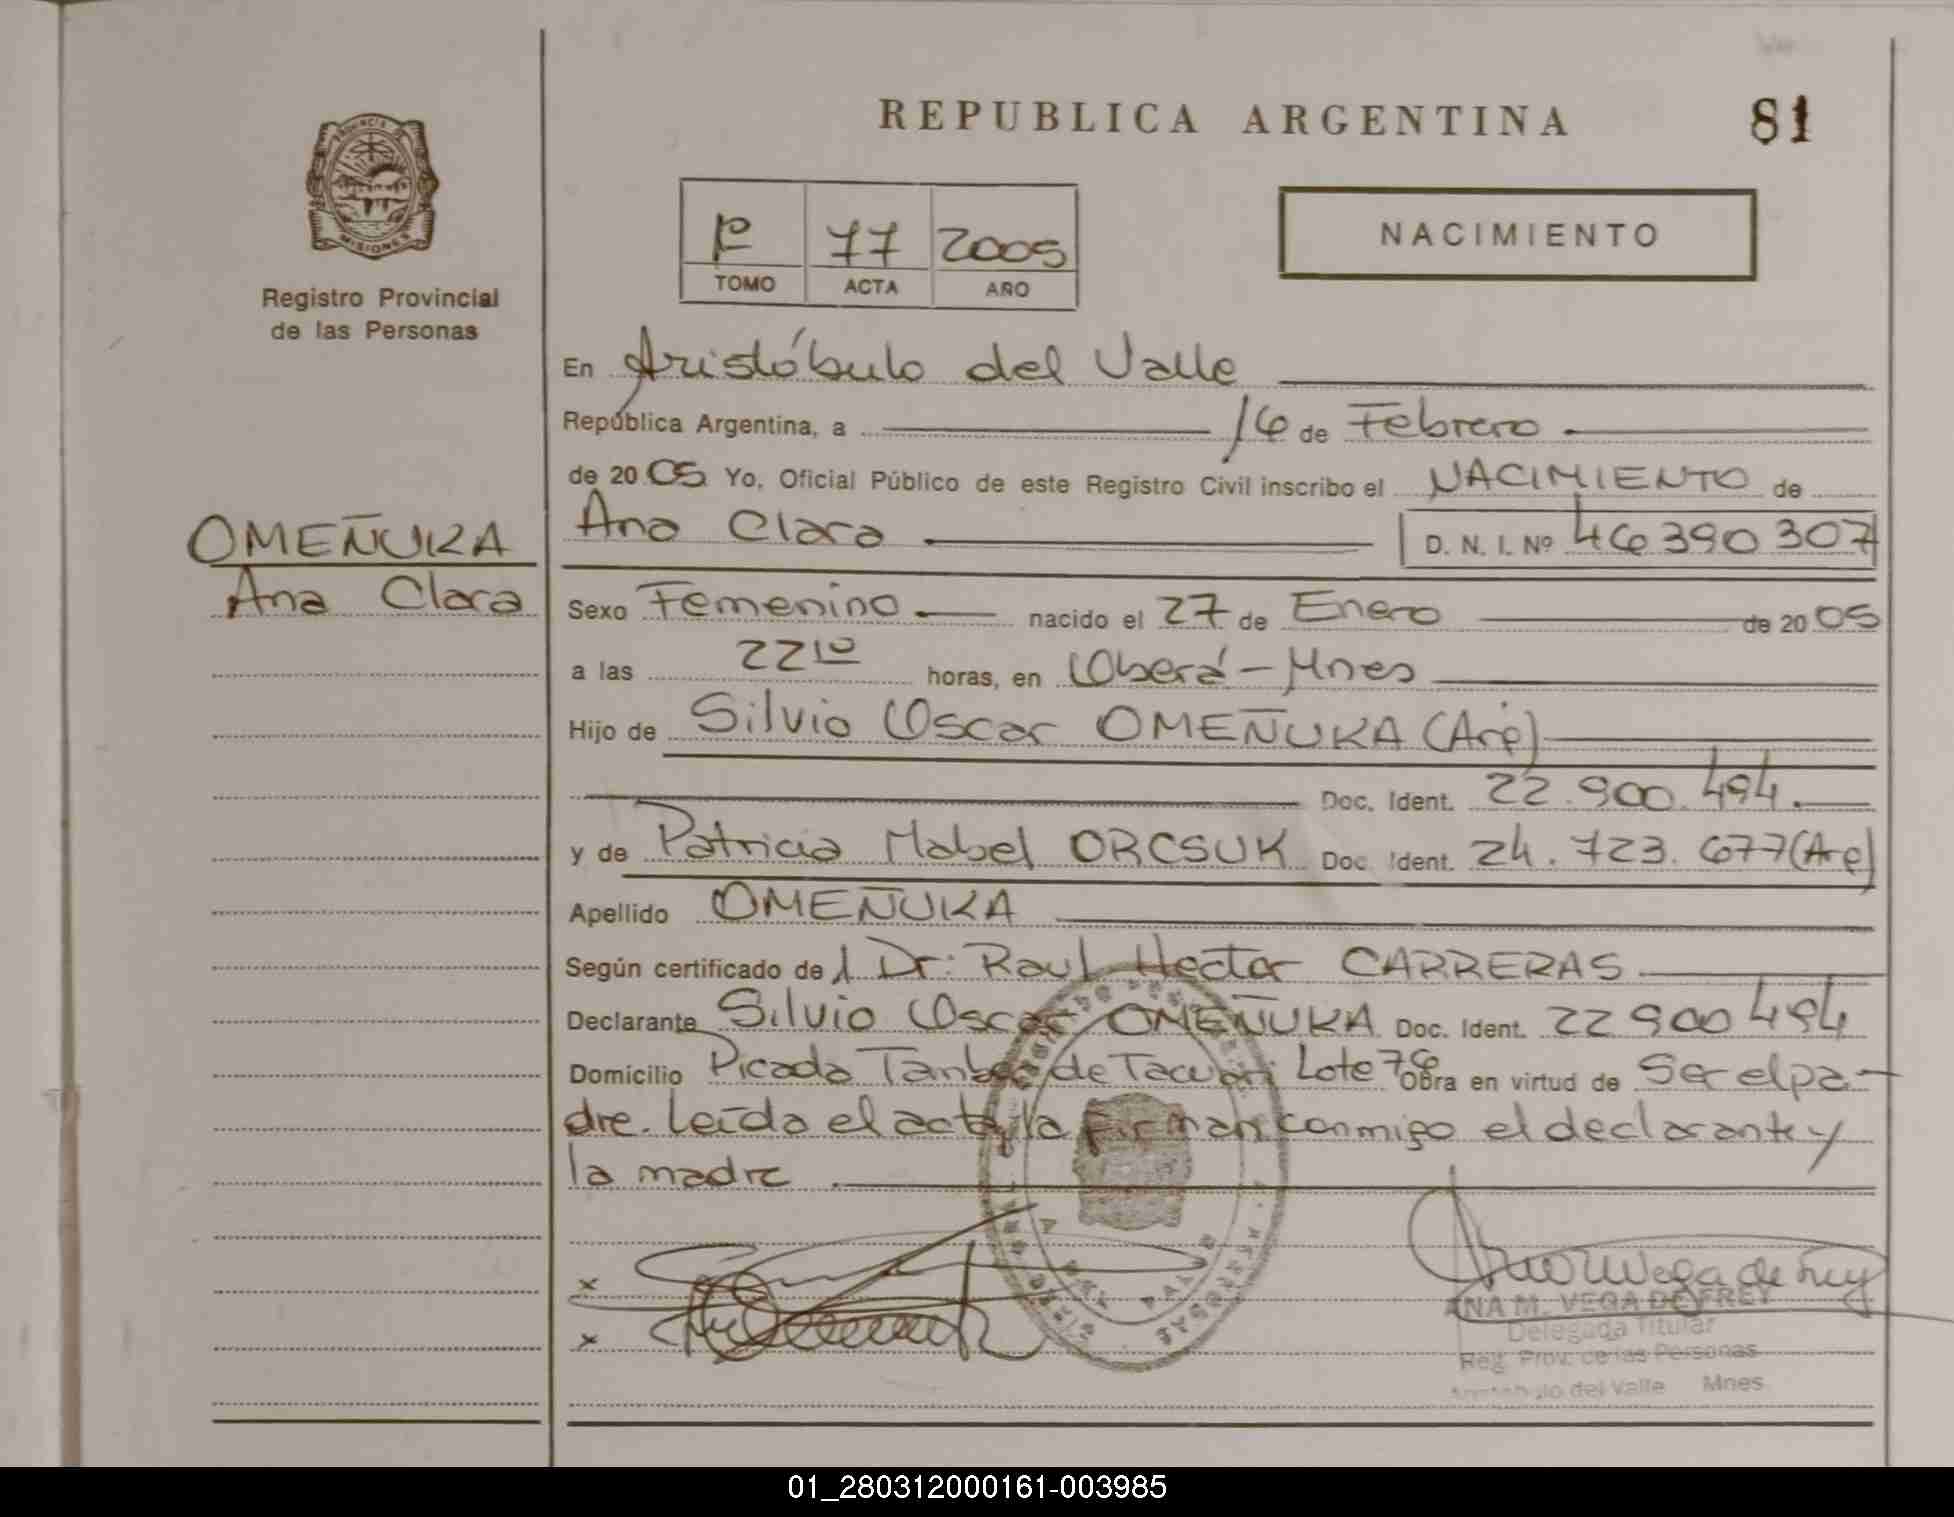 REPUBLICA ARGENTINA
81
PROVINCIA DE
MISIONES
Registro Provincial
de las Personas
1º 77 2005
TOMO ACTA AÑO
NACIMIENTO
OMEÑUKA
Ana Clara
En Aristóbulo del Valle
República Argentina, a 16 de Febrero
de 20 05 Yo, Oficial Público de este Registro Civil inscribo el NACIMIENTO de
Ana Clara D. N. I. Nº 46390307
Sexo Femenino nacido el 27 de Enero de 20 05
a las 22 10 horas, en Oberá - Mnes
Hijo de Silvio Oscar OMEÑUKA (Arg)
Doc. Ident. 22.900.494.
y de Patricia Mabel ORCSUK Doc. Ident. 24.723.677 (Arg)
Apellido OMEÑUKA
Según certificado de l Dr: Raul Hector CARRERAS
Declarante Silvio Oscar OMEÑUKA Doc. Ident. 22900494
Domicilio Picada Tambor de Tacuari Lote 76 Obra en virtud de Ser el pa-
dre. Leída el acta, la firman conmigo el declarante y
la madre
x
x
ANA M. VEGA DE FREY
Delegada Titular
Reg. Prov. de las Personas
Aristóbulo del Valle Mnes
01_280312000161-003985